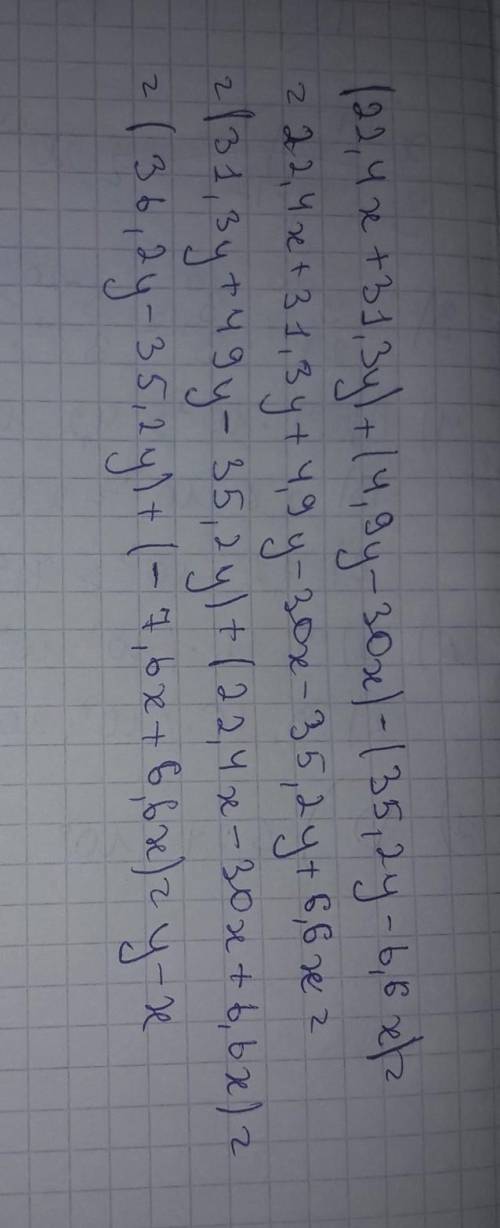 (22,4x+31,3y)+(4,9y-30x)-(35,2y-6,6x)=
=22,4x+31,3y+4,9y-30x-35,2y+6,6x=
=(31,3y+49y-35,2y)+(22,4x-30x+6,6x)=
=(36,2y-35,2y)+(-7,6x+6,6x)=y-x